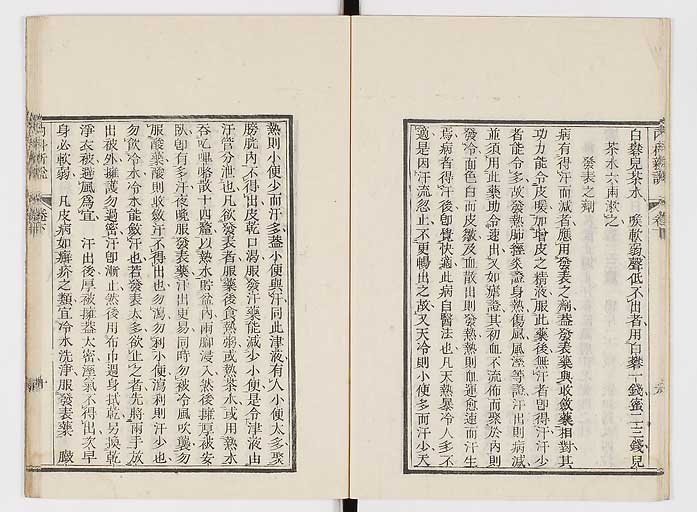 白礬兒茶水　喉軟弱聲低不出者用白礬一錢蜜二三錢兒
茶水六兩漱之
發表之劑
病有得汗而減者應用發表之劑蓋發表藥與收斂藥相對其
功力能令皮暖加增皮之精液服此藥後無汗者卽得汗汗少
者能令多故發熱肺經炎證身熱傷風風溼等證汗出則病減
並須用此藥助令速出又如瘧證其初血不流佈而聚於內則
發冷面色白而皮皺及血散出則發熱熱則血運愈速而汗生
焉病者得汗後卽覺快適此病自醫法也凡天熱暴冷人多不
適是因汗流忽止不更暢出之故又天冷則小便多而汗少天
熱則小便少而汗多蓋小便與汗同此津液有人小便太多聚
膀胱內不得出皮乾口渴服發汗藥能減少小便是令津液由
汗管分泄也凡欲發表者服藥後食熱粥或熱茶水或用熱水
臥卽有多汗夜晚服發表藥汗出更易同時勿被冷風吹襲勿
服酸藥酸則收斂汗不得出也勿瀉勿利小便瀉利則汗少也
勿飲冷水冷水能斂汗也若發表太多欲止之者先將兩手放
出被外擁護勿過密汗卽漸止然後用布巾遍身拭乾易換乾
淨衣被避風爲宜　汗出後厚被擁蓋太密溼氣不得出次早
身必軟弱　凡皮病如癬疥之類宜冷水洗淨服發表藥
內科新說
卷下